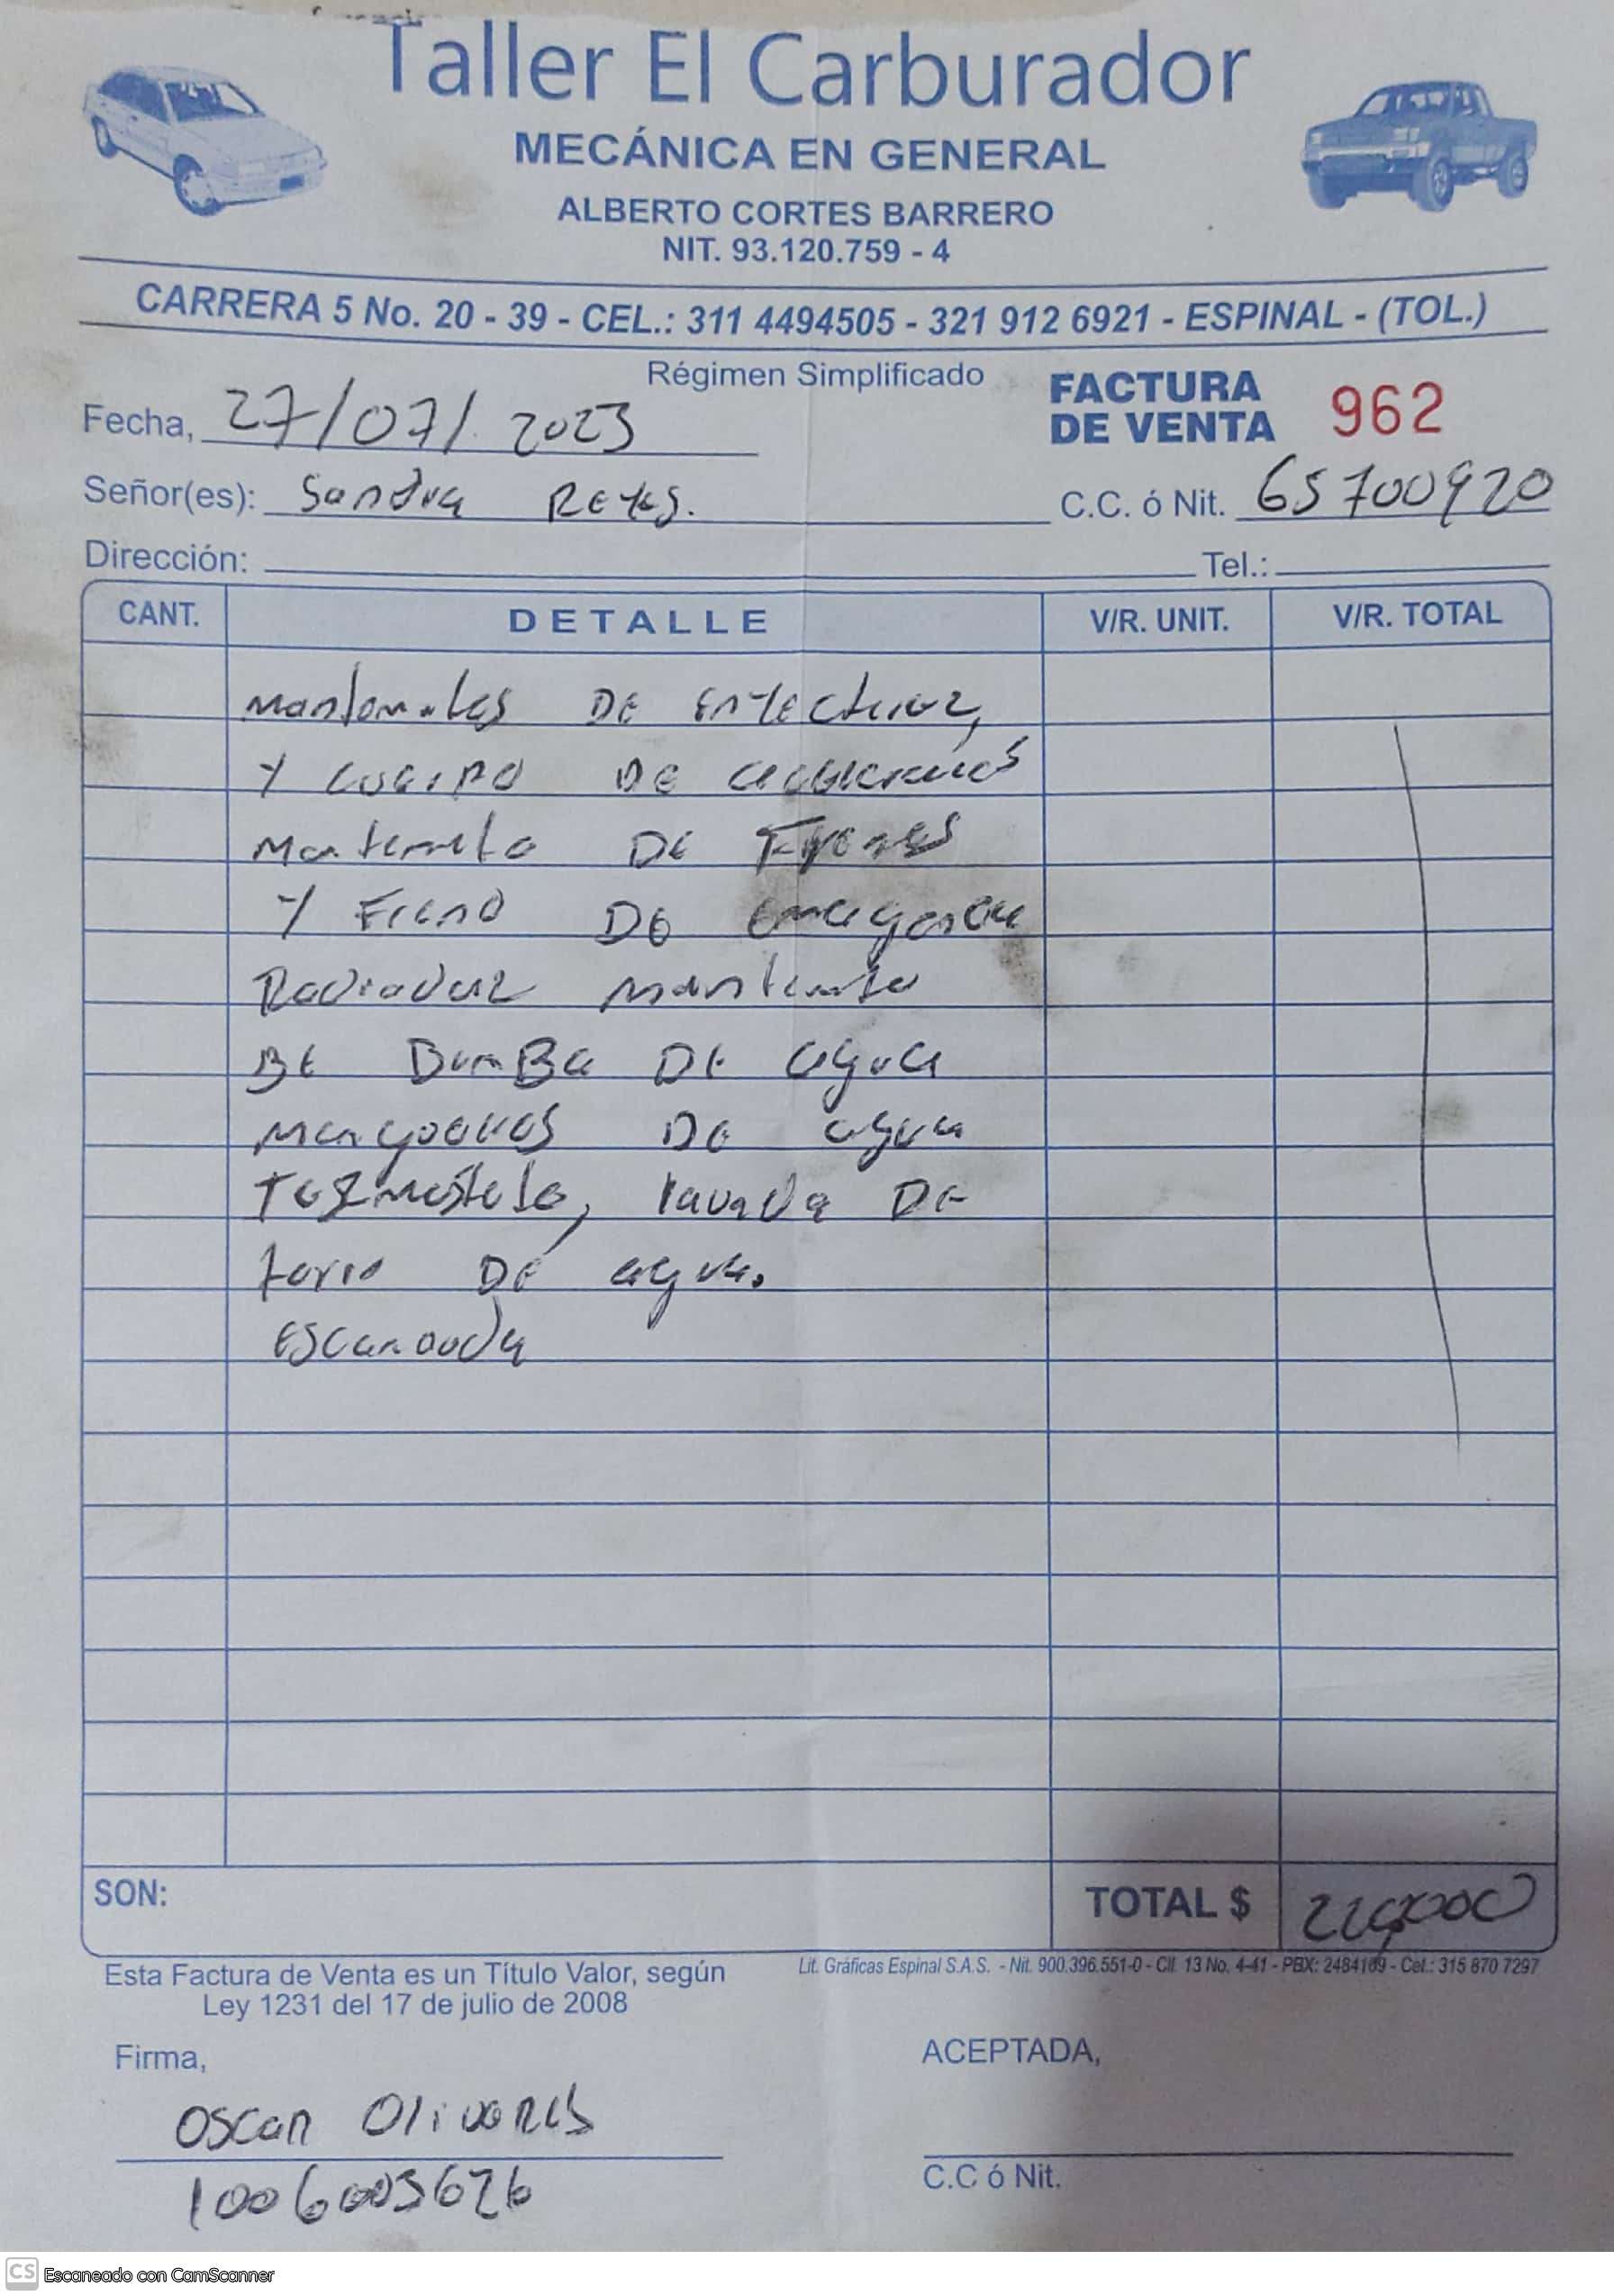 Taller El Carburador
MECÁNICA EN GENERAL
ALBERTO CORTES BARRERO
NIT. 93.120.759 - 4
CARRERA 5 No. 20 - 39 - CEL.: 311 4494505 - 321 912 6921 - ESPINAL - (TOL.)
Régimen Simplificado
FACTURA DE VENTA 962
Fecha, 27/07/2023
Señor(es): Sandra Reyes. C.C. ó Nit. 65700920
Dirección: Tel.:
CANT. DETALLE V/R. UNIT. V/R. TOTAL
DE
Y cuerpo DE
DE Frenos
Y Freno DE
Radiador
DE BomBa DE agua
DE agua
lavada DE
DE agua.
Escaneada
SON: TOTAL $
Esta Factura de Venta es un Título Valor, según
Ley 1231 del 17 de julio de 2008
Lit. Gráficas Espinal S.A.S. - Nit. 900.396.551-0 - Cll. 13 No. 4-41 - PBX: 2484169 - Cel.: 315 870 7297
Firma, ACEPTADA,
OSCAR OlivaRES
1006003626
C.C ó Nit.
CS Escaneado con CamScanner